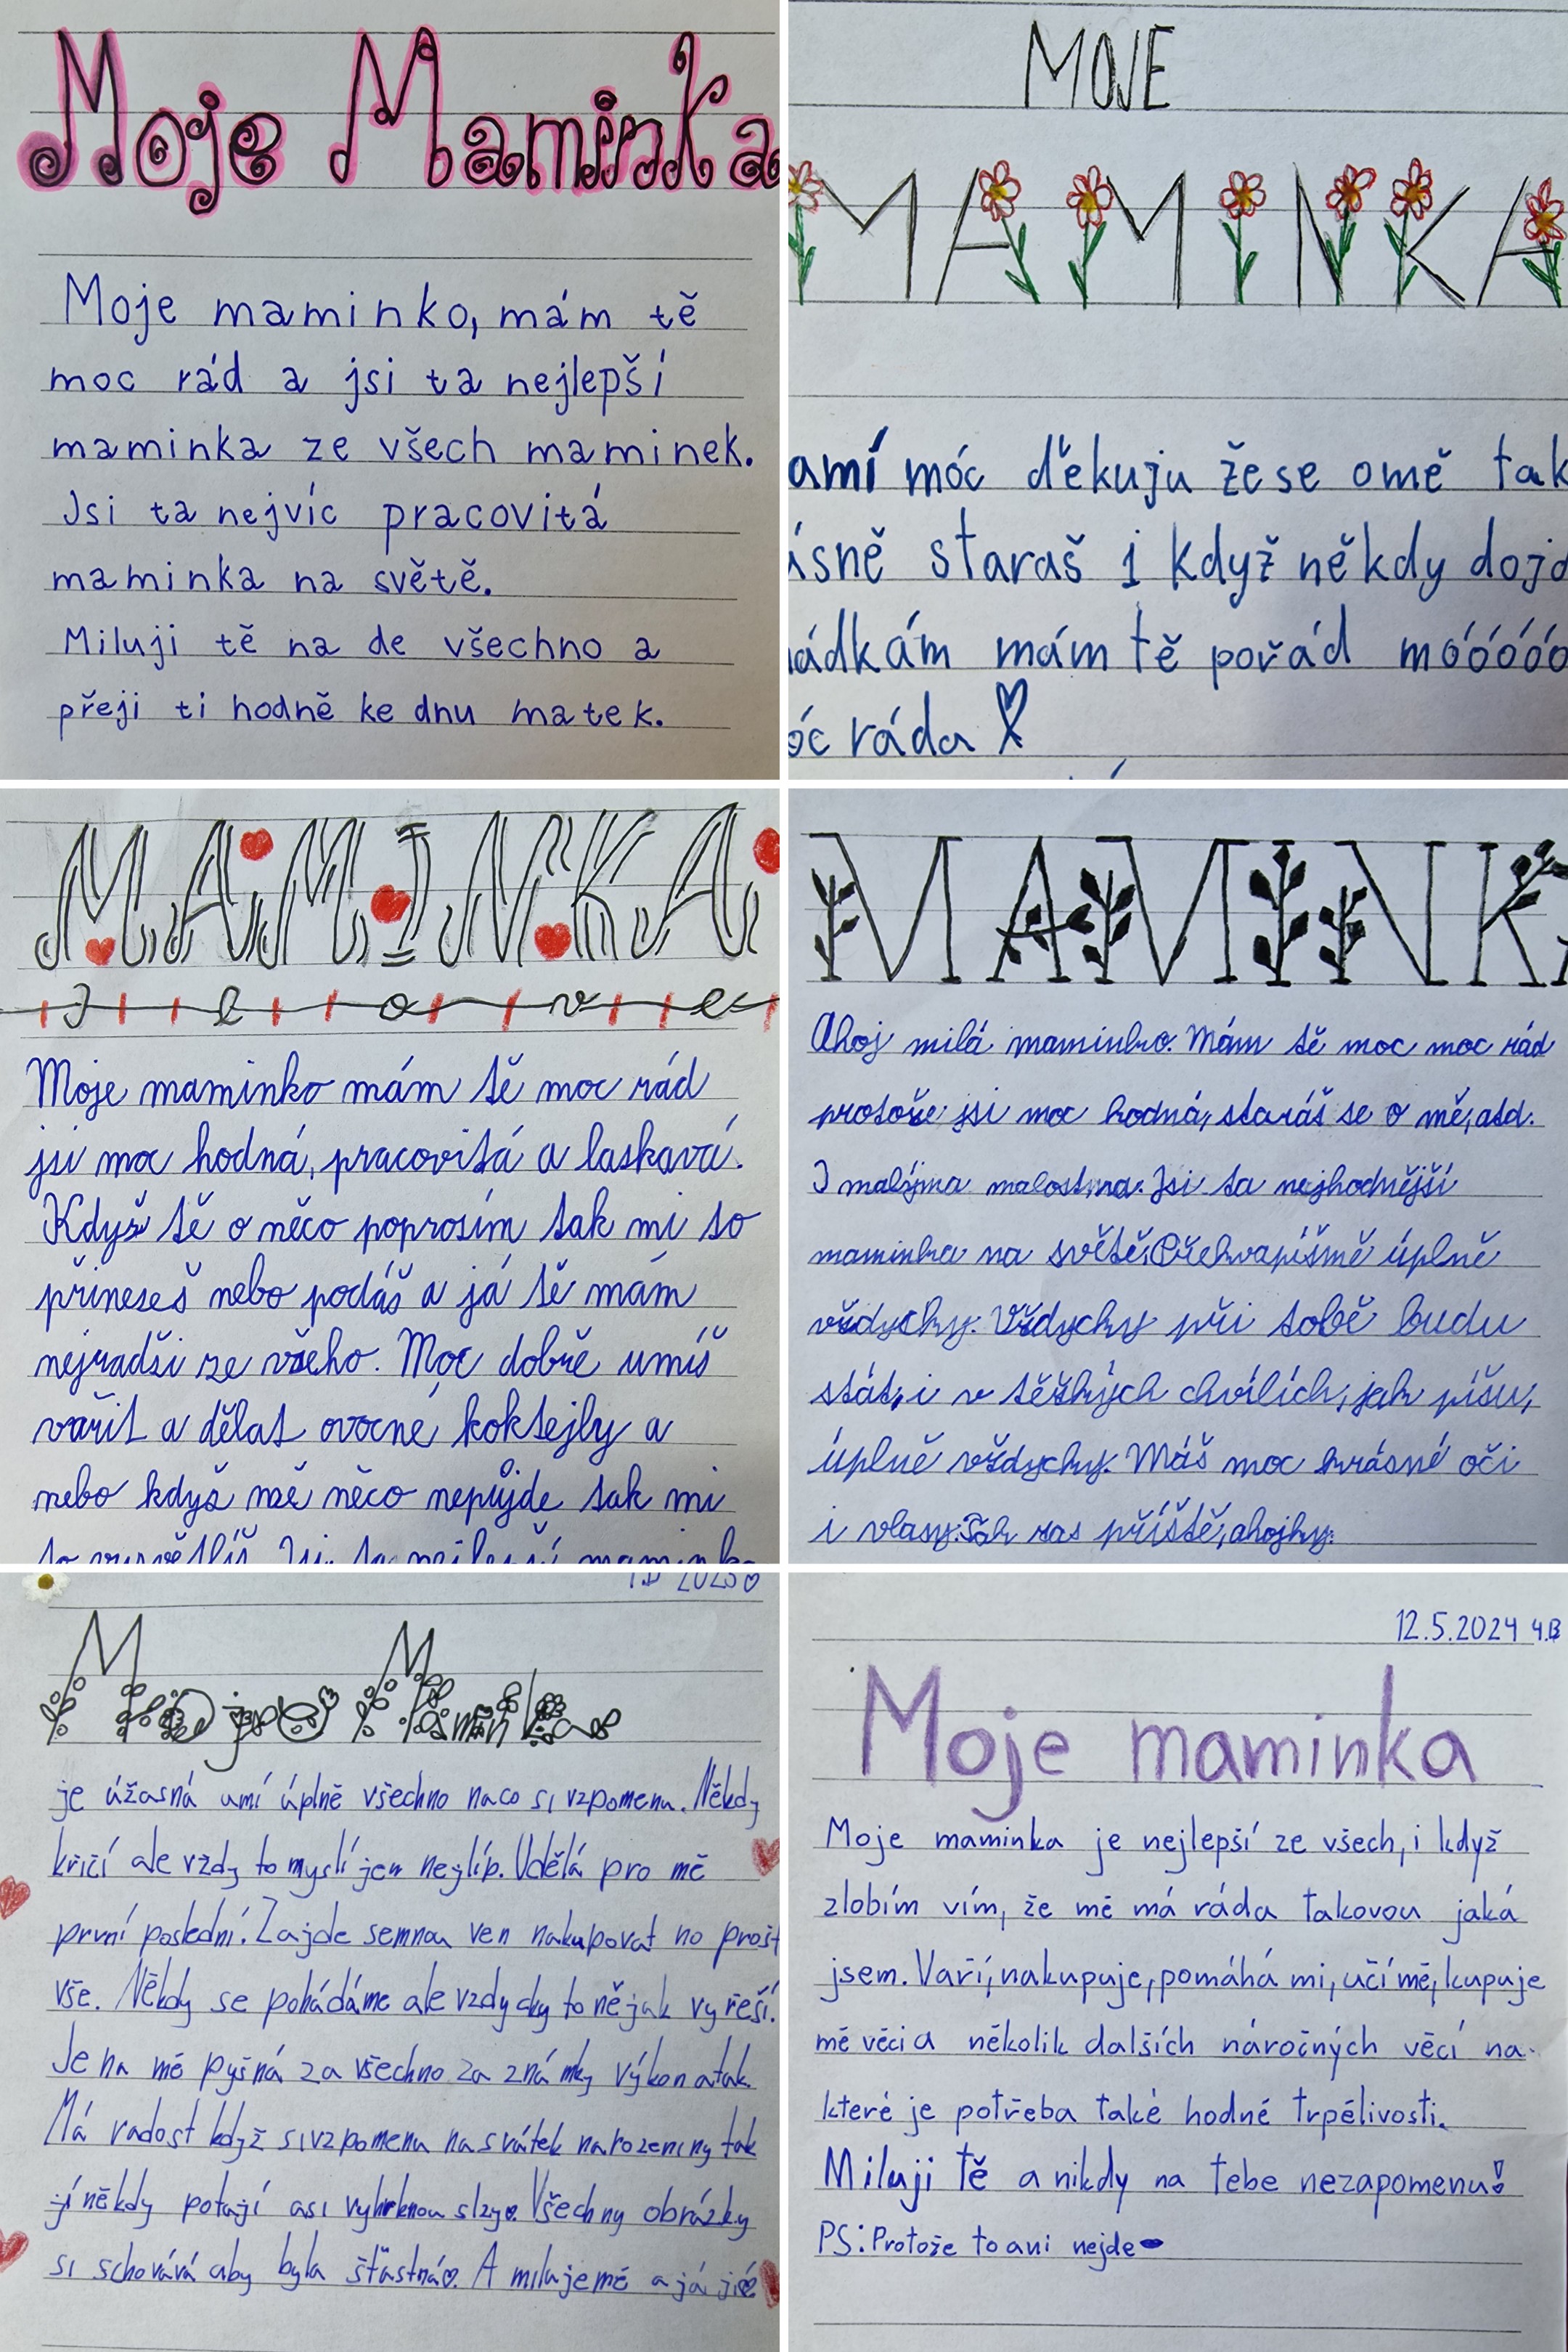 Moje Maminka
Moje maminko, mám tě
moc rád a jsi ta nejlepší
maminka ze všech maminek.
Jsi ta nejvíc pracovitá
maminka na světě.
Miluji tě na de všechno a
přeji ti hodně ke dnu matek.
MOJE
MAMINKA
amí móc ďěkuju že se omě tak
ásně staraš i když někdy dojd
ádkám mám tě pořád móóóóó
óc ráda
MAMINKA
I love
Moje maminko mám tě moc rád
jsi moc hodná, pracovitá a laskavá.
Když tě o něco poprosím tak mi to
přineseš nebo podáš a já tě mám
nejradši ze všeho. Moc dobře umíš
vařit a dělat ovocné koktejly a
nebo když mě něco nepůjde tak mi
to vysvětlíš. Jsi ta nejlepší maminka
MAMINKA
Ahoj milá maminko. Mám tě moc moc rád
protože jsi moc hodná, staráš se o mě, atd.
I malýma malostma. Jsi ta nejhodnější
maminka na světě. Překvapíšmě úplně
vždycky. Vždycky při tobě budu
stát, i v těžkých chvílích, jak píšu,
úplně vždycky. Máš moc krásné oči
i vlasy. Tak zas příště, ahojky.
2025
Moje Maminka
je úžasná umí úplně všechno naco si vzpomenu. Někdy
křičí ale vždy to myslí jen nejlíp. Udělá pro mě
první poslední. Zajde semnou ven nakupovat no prost
vše. Někdy se pohádáme ale vzdycky to nějak vyřeší.
Je na mě pyšná za všechno za známky výkon atak.
Má radost když si vzpomenu na svátek narozeniny tak
jí někdy potají asi vyhrknou slzy. Všechny obrázky
si schovává aby byla šťastná. A milujemě a já jí
12.5.2024 4.B
Moje maminka
Moje maminka je nejlepší ze všech, i když
zlobím vím, že mě má ráda takovou jaká
jsem. Vaří, nakupuje, pomáhá mi, učí mě, kupuje
mě věci a několik dalších náročných věcí na-
které je potřeba také hodně trpělivosti.
Miluji tě a nikdy na tebe nezapomenu!
PS: Protože to ani nejde